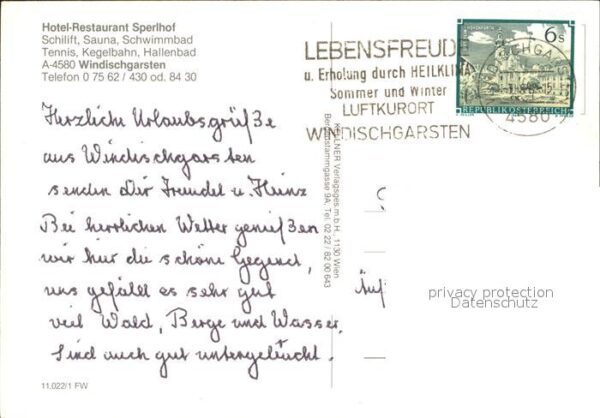 Hotel-Restaurant Sperlhof
Schilift, Sauna, Schwimmbad
Tennis, Kegelbahn, Hallenbad
A-4580 Windischgarsten
Telefon 0 75 62 / 430 od. 84 30
LEBENSFREUDE
u. Erholung durch HEILKLIMA
Sommer und Winter
LUFTKURORT
WINDISCHGARSTEN
6 S
REPUBLIK ÖSTERREICH
4580
Herzliche Urlaubsgrüße
aus Windischgarsten
senden Dir Friedel u. Heinz
Bei herrlichen Wetter genießen
wir hier die schöne Gegend,
uns gefällt es sehr gut
viel Wald, Berge und Wasser.
Sind auch gut untergebracht.
KELLNER Verlagsges.m.b.H., 1130 Wien
Tel. 02 22 / 82 00 643
privacy protection
Datenschutz
11.022/1 FW